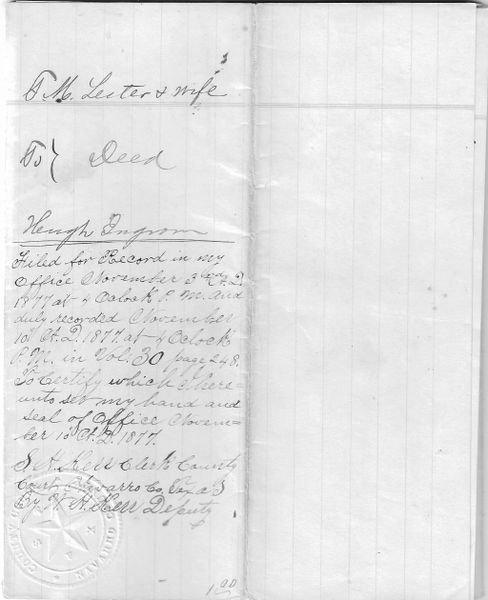 T. M. Lester & wife
To } Deed
Heugh Ingrom
Filed for Record in my
Office November 3rd A.D.
1877 at 4 Oclock P. M. and
duly recorded November
10 A.D. 1877. at 4 Oclock
P.M. in Vol. 30 page 248.
To Certify which I here=
unto set my hand and
seal of Office Novem=
ber 10 A.D. 1877.
S. H. Kerr Clerk County
Court Navarro Co, Texas
By W. H. Kerr Deputy
1.00